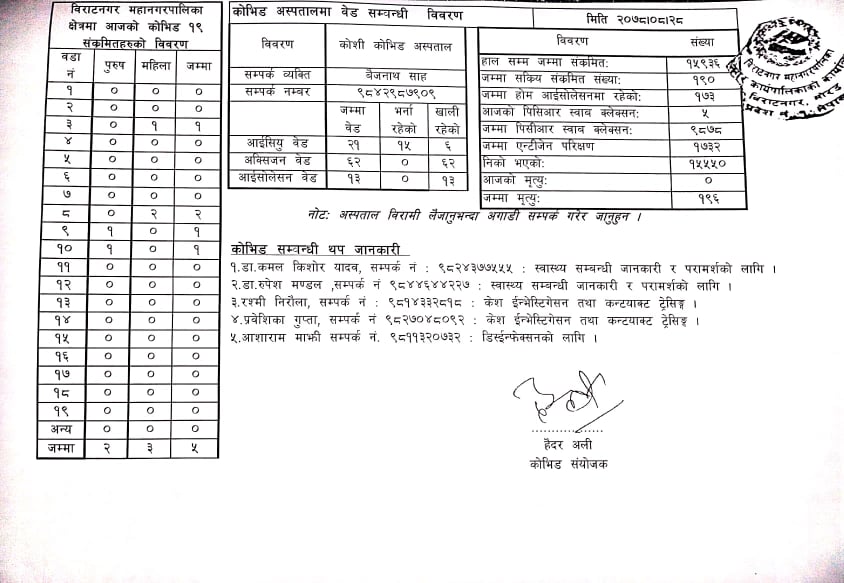 बिराटनगर महानगरपालिका
क्षेत्रमा आजको कोभिड १९
संक्रमितहरुको विवरण
वडा नं पुरुष महिला जम्मा
१ ० ० ०
२ ० ० ०
३ ० १ १
४ ० ० ०
५ ० ० ०
६ ० ० ०
७ ० ० ०
८ ० २ २
९ १ ० १
१० १ ० १
११ ० ० ०
१२ ० ० ०
१३ ० ० ०
१४ ० ० ०
१५ ० ० ०
१६ ० ० ०
१७ ० ० ०
१८ ० ० ०
१९ ० ० ०
अन्य ० ० ०
जम्मा २ ३ ५
कोभिड अस्पतालमा वेड सम्वन्धी विवरण
विवरण कोशी कोभिड अस्पताल
सम्पर्क व्यक्ति बैजनाथ साह
सम्पर्क नम्बर ९८४२९८७९०९
जम्मा वेड भर्ना रहेको खाली रहेको
आईसियु वेड २१ १५ ६
अक्सिजन वेड ६२ ० ६२
आईसोलेसन वेड १३ ० १३
मिति २०७८।०८।२८
विवरण संख्या
हाल सम्म जम्मा संक्रमित: १५९३६
जम्मा सक्रिय संक्रमित संख्या: १९०
जम्मा होम आईसोलेसनमा रहेको: १७३
आजको पिसिआर स्वाब क्लेक्सन: ५
जम्मा पिसीआर स्वाब क्लेक्सन: ९८७८
जम्मा एन्टीजेन परिक्षण १७३२
निको भएको: १५५५०
आजको मृत्यु: ०
जम्मा मृत्यु: १९६
बिराटनगर महानगरपालिका
कार्यपालिकाको
बिराटनगर, मोरङ
प्रदेश नं. १, नेपाल
नोटः अस्पताल विरामी लैजानुभन्दा अगाडी सम्पर्क गरेर जानुहुन ।
कोभिड सम्वन्धी थप जानकारी
१.डा.कमल किशोर यादव, सम्पर्क नं : ९८२४३७७५५५ : स्वास्थ्य सम्बन्धी जानकारी र परामर्शको लागि ।
२.डा.रुपेश मण्डल ,सम्पर्क नं ९८४४६४४२२७ : स्वास्थ्य सम्बन्धी जानकारी र परामर्शको लागि ।
३.रश्मी निरौला, सम्पर्क नं : ९८१४३३२८१८ : केश ईन्भेस्टिगेसन तथा कन्टयाक्ट ट्रेसिङ्ग ।
४.प्रवेशिका गुप्ता, सम्पर्क नं ९८२७०४८०९२ : केश ईन्भेस्टिगेसन तथा कन्टयाक्ट ट्रेसिङ्ग ।
५.आशाराम माझी सम्पर्क नं. ९८११३२०७३२ : डिस्ईन्फेक्सनको लागि ।
हैदर अली
कोभिड संयोजक